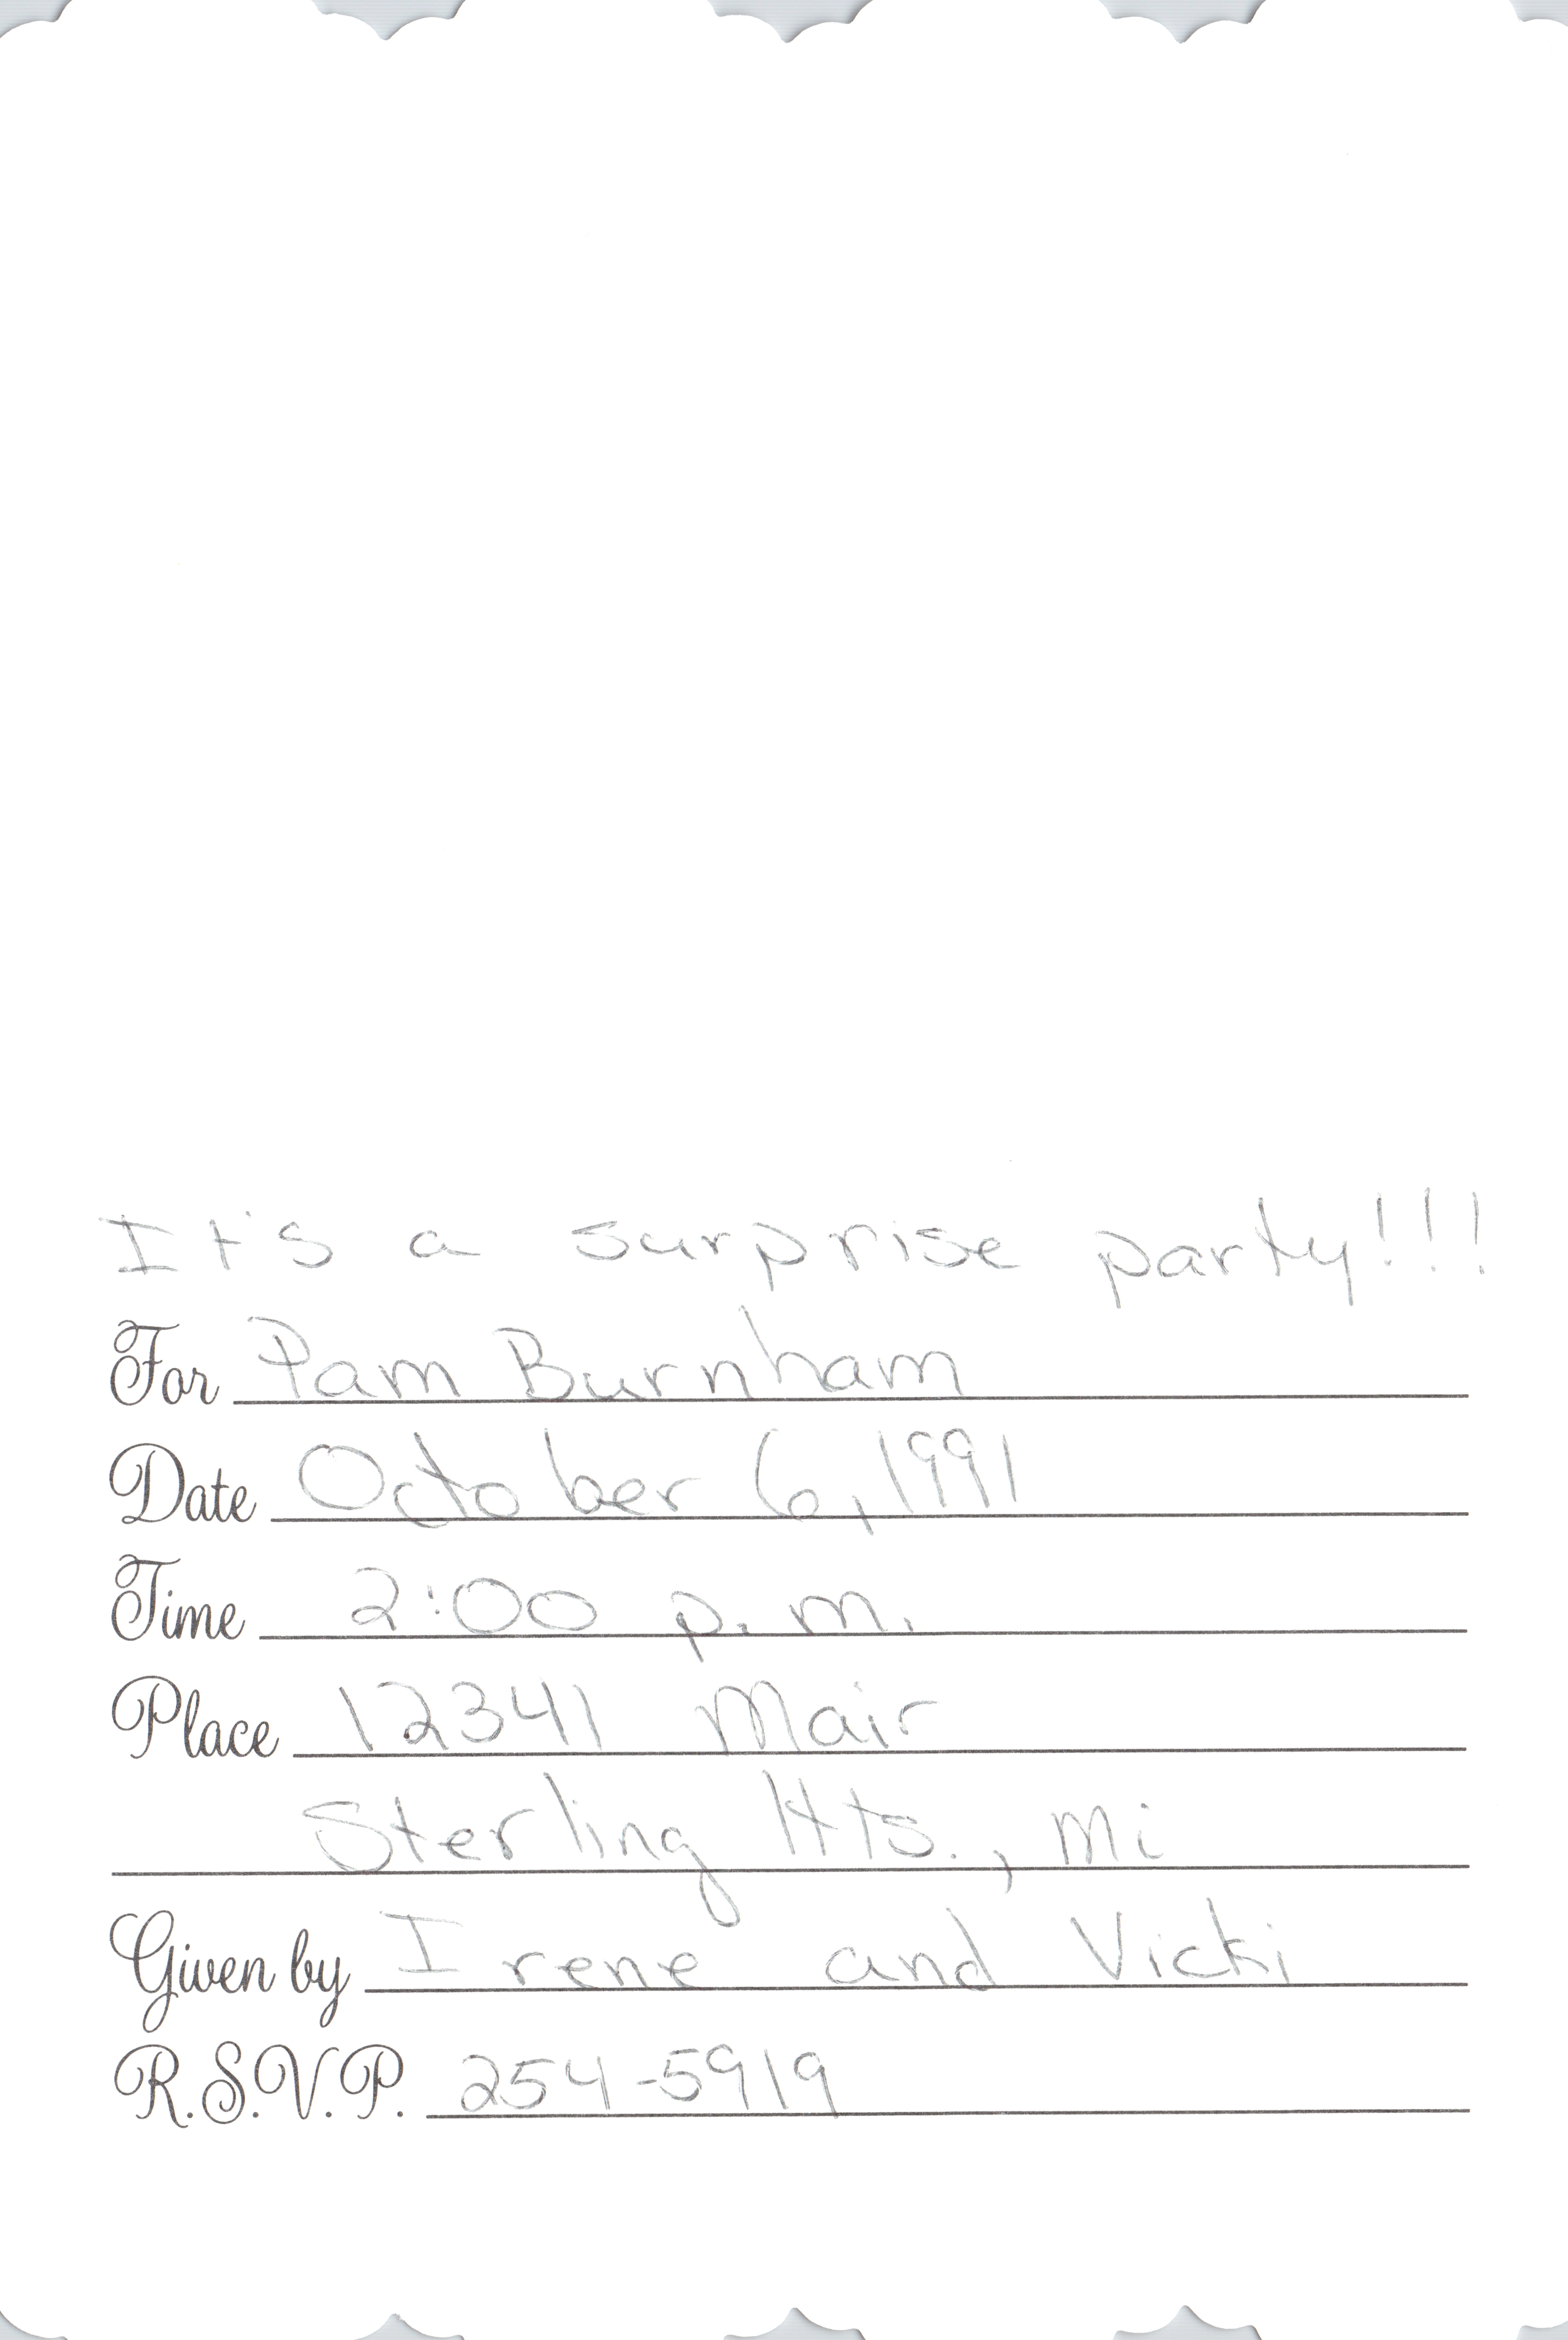 It's a surprise party!!!
For Pam Burnham
Date October 6, 1991
Time 2:00 p.m.
Place 12341 Mair
Sterling Hts., Mi
Given by Irene and Vicki
R.S.V.P. 254-5919